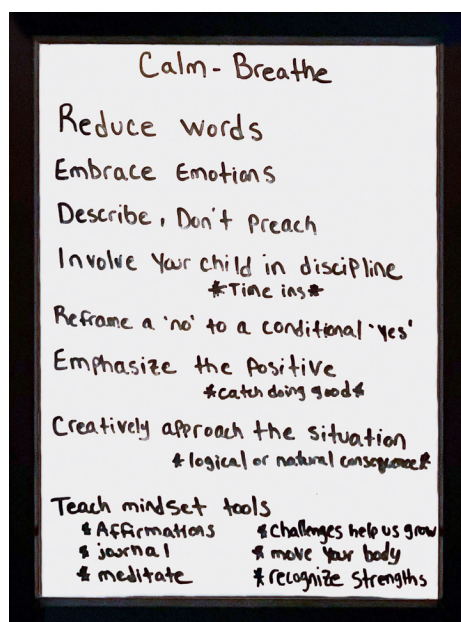 Calm - Breathe
Reduce words
Embrace Emotions
Describe, Don't Preach
Involve Your child in discipline
*Time ins*
Reframe a 'no' to a conditional 'yes'
Emphasize the Positive
*catch doing good*
Creatively approach the situation
* logical or natural consequences*
Teach mindset tools
* Affirmations * challenges help us grow
* journal * move your body
* meditate * recognize strengths